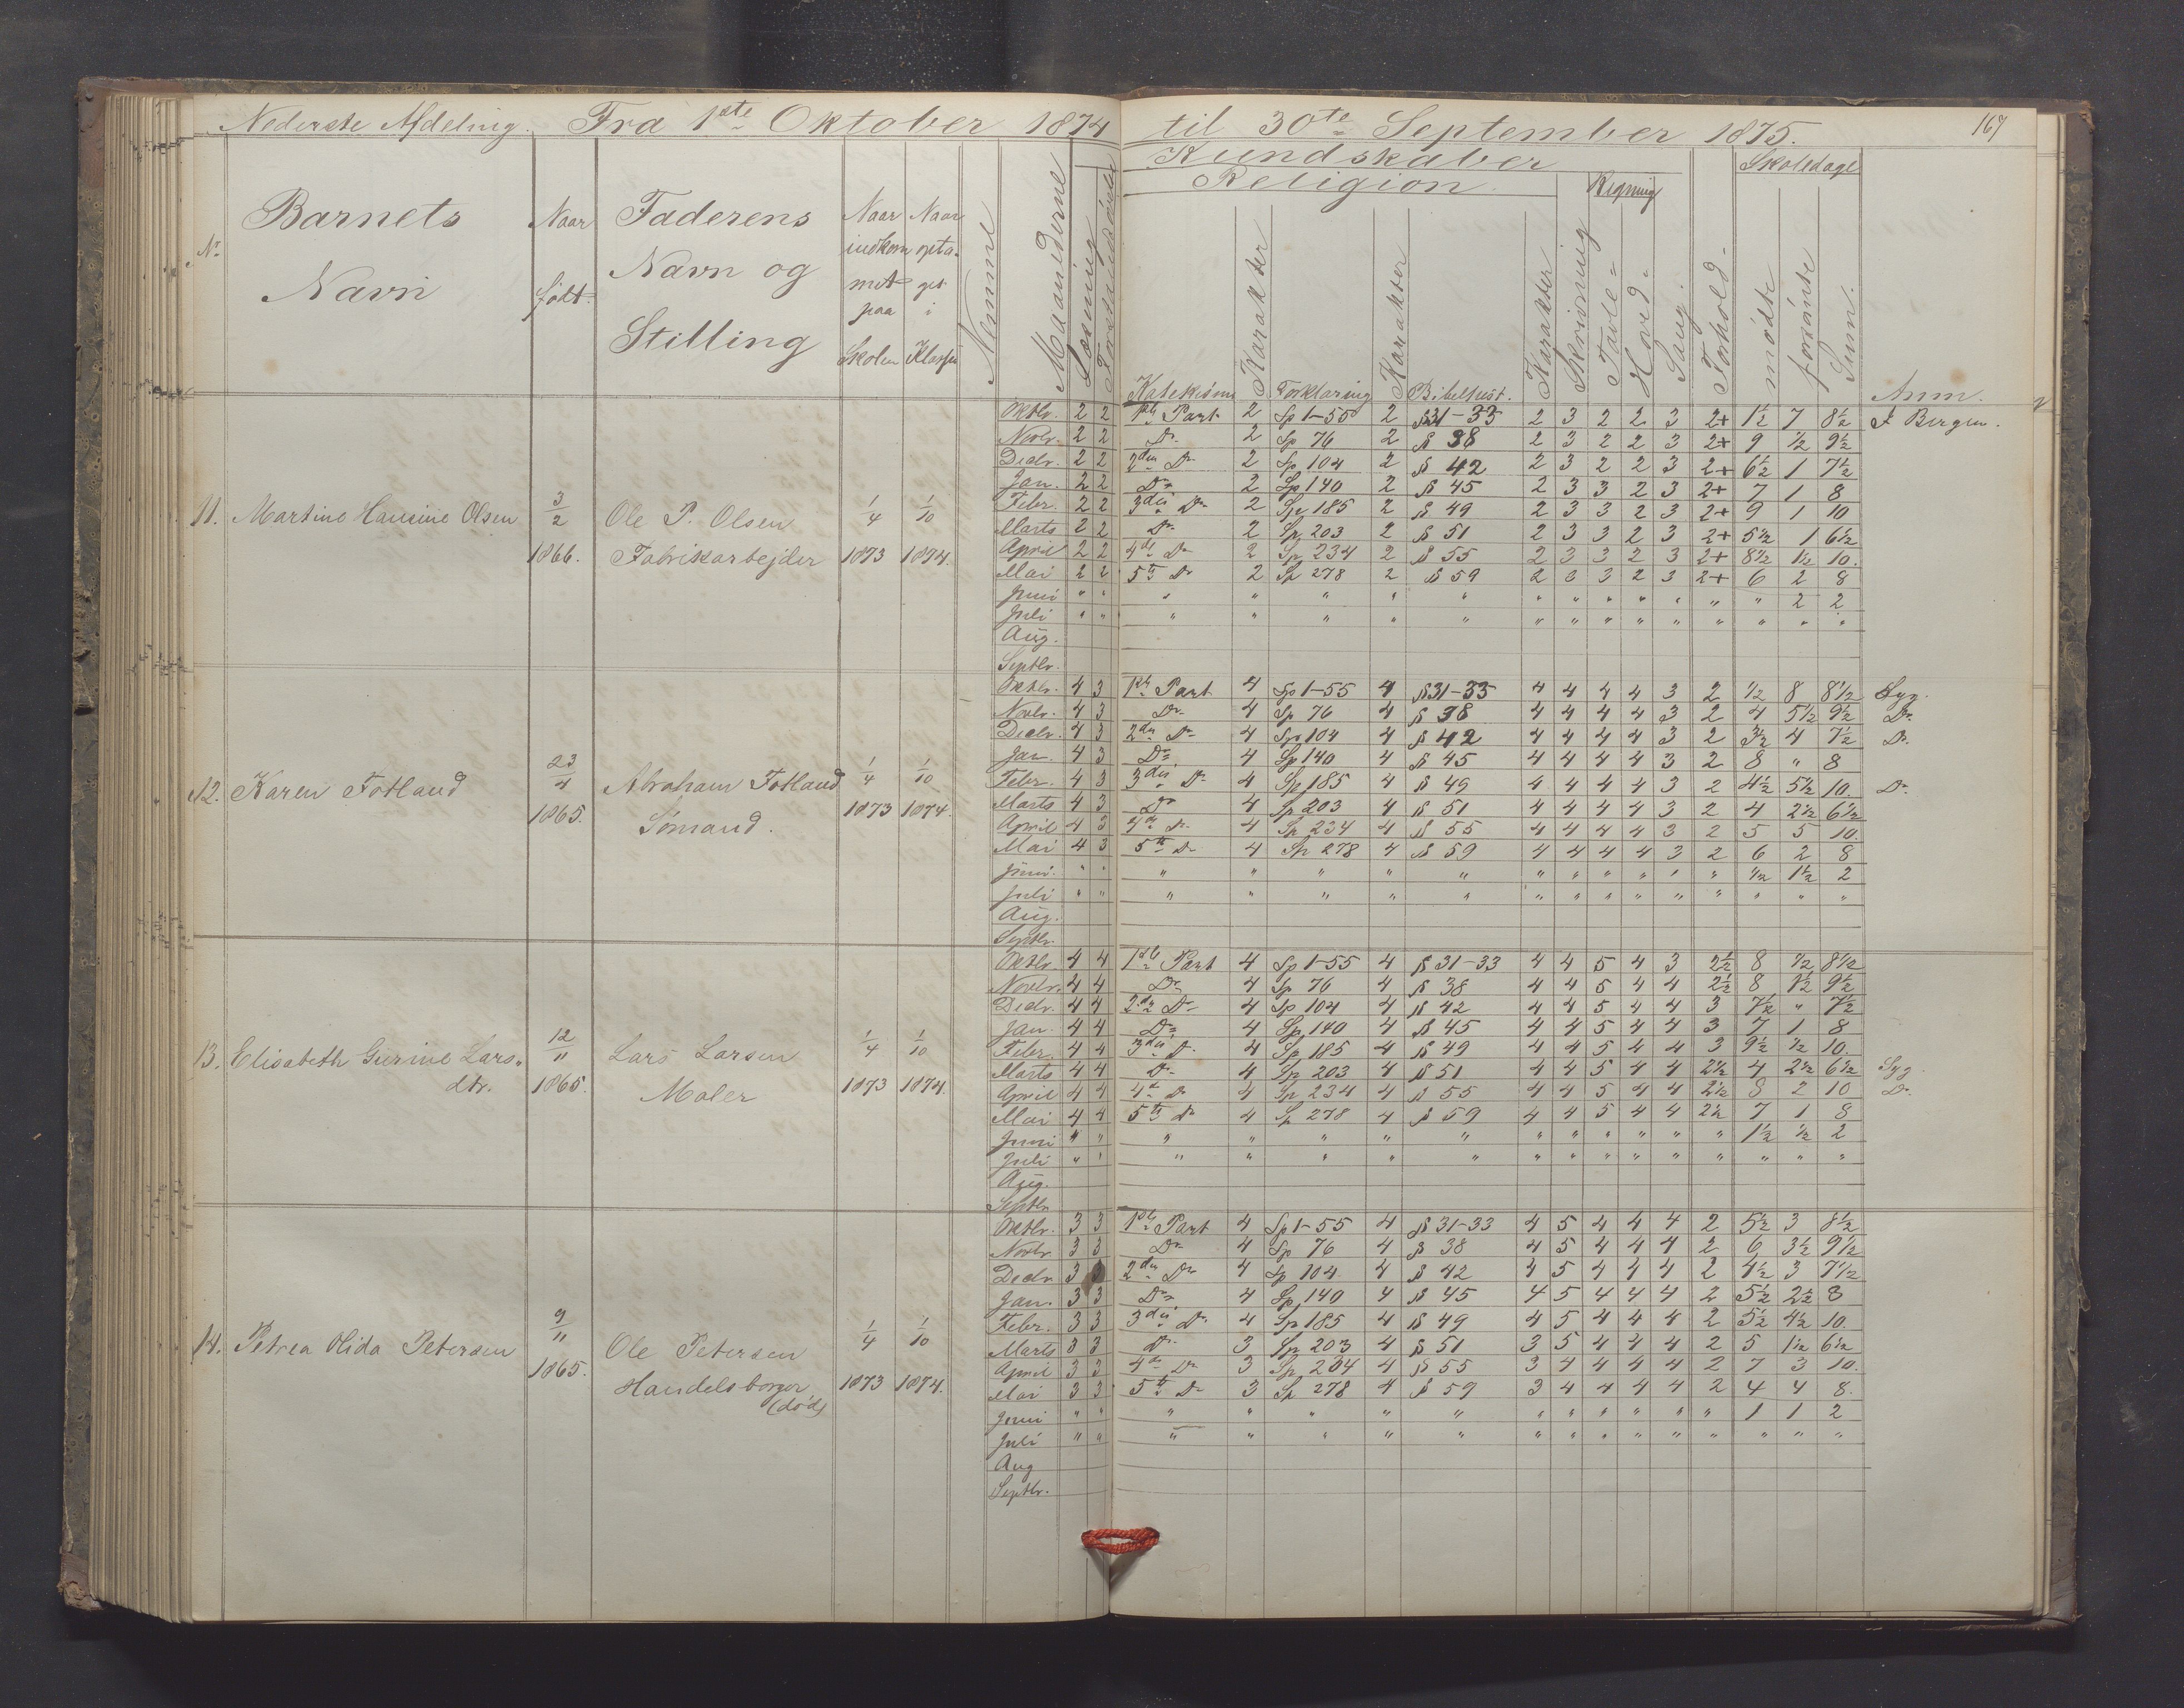 Nederste Afdeling. Fra 1ste Oktober 1874 til 30te September 1875. 167
Kundskaber
Religion. Regning Skoledage
No Barnets Navn Naar født. Faderens Navn og Stilling Naar indkommet paa Skolen Naar optaget i Klassen Nemme Maanederne Læsning Katekism. Karakter Forklaring Karakter Bibelhist. Karakter Skrivning Tavle- Hoved- Sang. Forhold- mødte forsømte Sum. Anm.
11. Martine Hansine Olsen 3/2 1866. Ole P. Olsen Fabrikarbejder 1/4 1873 1/10 1874.
Oktbr. 2 2 1ste Part 2 Sp 1-55 2 § 31-33 2 3 2 2 3 2+ 1½ 7 8½ I Bergen.
Novbr. 2 2 Do 2 Sp 76 2 § 38 2 3 2 2 3 2+ 9 ½ 9½
Decbr. 2 2 2den Do 2 Sp 104 2 § 42 2 3 2 2 3 2+ 6½ 1 7½
Jan. 2 2 Do 2 Sp 140 2 § 45 2 3 3 2 3 2+ 7 1 8
Febr. 2 2 3die Do 2 Sp 185 2 § 49 2 3 3 2 3 2+ 9 1 10
Marts 2 2 Do 2 Sp 203 2 § 51 2 3 3 2 3 2+ 5½ 1 6½
April 2 2 4de Do 2 Sp 234 2 § 55 2 3 3 2 3 2+ 8½ 1½ 10.
Mai 2 2 5te Do 2 Sp 278 2 § 59 2 3 3 2 3 2+ 6 2 8
Juni " " " " " " " " " " " " " " 2 2
Juli " " " " " " " " " " " " " " " "
Aug.
Septbr.
12. Karen Fotland 23/4 1865. Abraham Fotland Sømand. 1/4 1873 1/10 1874.
Oktbr. 4 3 1ste Part 4 Sp 1-55 4 § 31-33 4 4 4 4 3 2 ½ 8 8½ Syg.
Novbr. 4 3 Do 4 Sp 76 4 § 38 4 4 4 4 3 2 4 5½ 9½ Do.
Decbr. 4 3 2den Do 4 Sp 104 4 § 42 4 4 4 4 3 2 3½ 4 7½ Do.
Jan. 4 3 Do 4 Sp 140 4 § 45 4 4 4 4 3 2 8 " 8
Febr. 4 3 3die Do 4 Sp 185 4 § 49 4 4 4 4 3 2 4½ 5½ 10. Do.
Marts 4 3 Do 4 Sp 203 4 § 51 4 4 4 4 3 2 4 2½ 6½
April 4 3 4de Do 4 Sp 234 4 § 55 4 4 4 4 3 2 5 5 10.
Mai 4 3 5te Do 4 Sp 278 4 § 59 4 4 4 4 3 2 6 2 8
Juni. " " " " " " " " " " " " " ½ 1½ 2
Juli " " " " " " " " " " " " " " " "
Aug.
Septbr.
13. Elisabeth Gurine Larsdtr. 12/11 1865. Lars Larsen Maler 1/4 1873 1/10 1874.
Oktbr. 4 4 1ste Part 4 Sp 1-55 4 § 31-33 4 4 5 4 3 2½ 8 ½ 8½
Novbr. 4 4 Do 4 Sp 76 4 § 38 4 4 5 4 4 2½ 8 1½ 9½
Decbr. 4 4 2den Do 4 Sp 104 4 § 42 4 4 5 4 4 3 7½ " 7½
Jan. 4 4 Do 4 Sp 140 4 § 45 4 4 5 4 4 3 7 1 8
Febr. 4 4 3die Do 4 Sp 185 4 § 49 4 4 5 4 4 3 9½ ½ 10.
Marts 4 4 Do 4 Sp 203 4 § 51 4 4 5 4 4 2½ 4 2½ 6½ Syg.
April 4 4 4de Do 4 Sp 234 4 § 55 4 4 5 4 4 2½ 8 2 10 Do.
Mai 4 4 5te Do 4 Sp 278 4 § 59 4 4 5 4 4 2½ 7 1 8
Juni " " " " " " " " " " " " " 1½ ½ 2
Juli " " " " " " " " " " " " " " " "
Aug.
Septbr
14. Petrea Olida Petersen 9/11 1865. Ole Petersen Handelsborger, (død) 1/4 1873 1/10 1874.
Oktbr. 3 3 1ste Part 4 Sp 1-55 4 § 31-33 4 5 4 4 4 2 5½ 3 8½
Novbr. 3 3 Do 4 Sp 76 4 § 38 4 5 4 4 4 2 6 3½ 9½
Decbr. 3 2den Do 4 Sp 104 4 § 42 4 5 4 4 4 2 4½ 3 7½
Jan. 3 3 Do 4 Sp 140 4 § 45 4 5 4 4 4 2 5½ 2½ 8
Febr. 3 3 3die Do 4 Sp 185 4 § 49 4 5 4 4 4 2 5½ 4½ 10.
Marts 3 3 Do 3 Sp 203 4 § 51 3 5 4 4 4 2 5 1½ 6½
April 3 3 4de Do 3 Sp 234 4 § 55 3 4 4 4 4 2 7 3 10.
Mai 3 3 5te Do 3 Sp 278 4 § 59 3 4 4 4 4 2 4 4 8.
Juni " " " " " " " " " " " " " 1 1 2
Juli " " " " " " " " " " " " " " " "
Aug
Septbr.